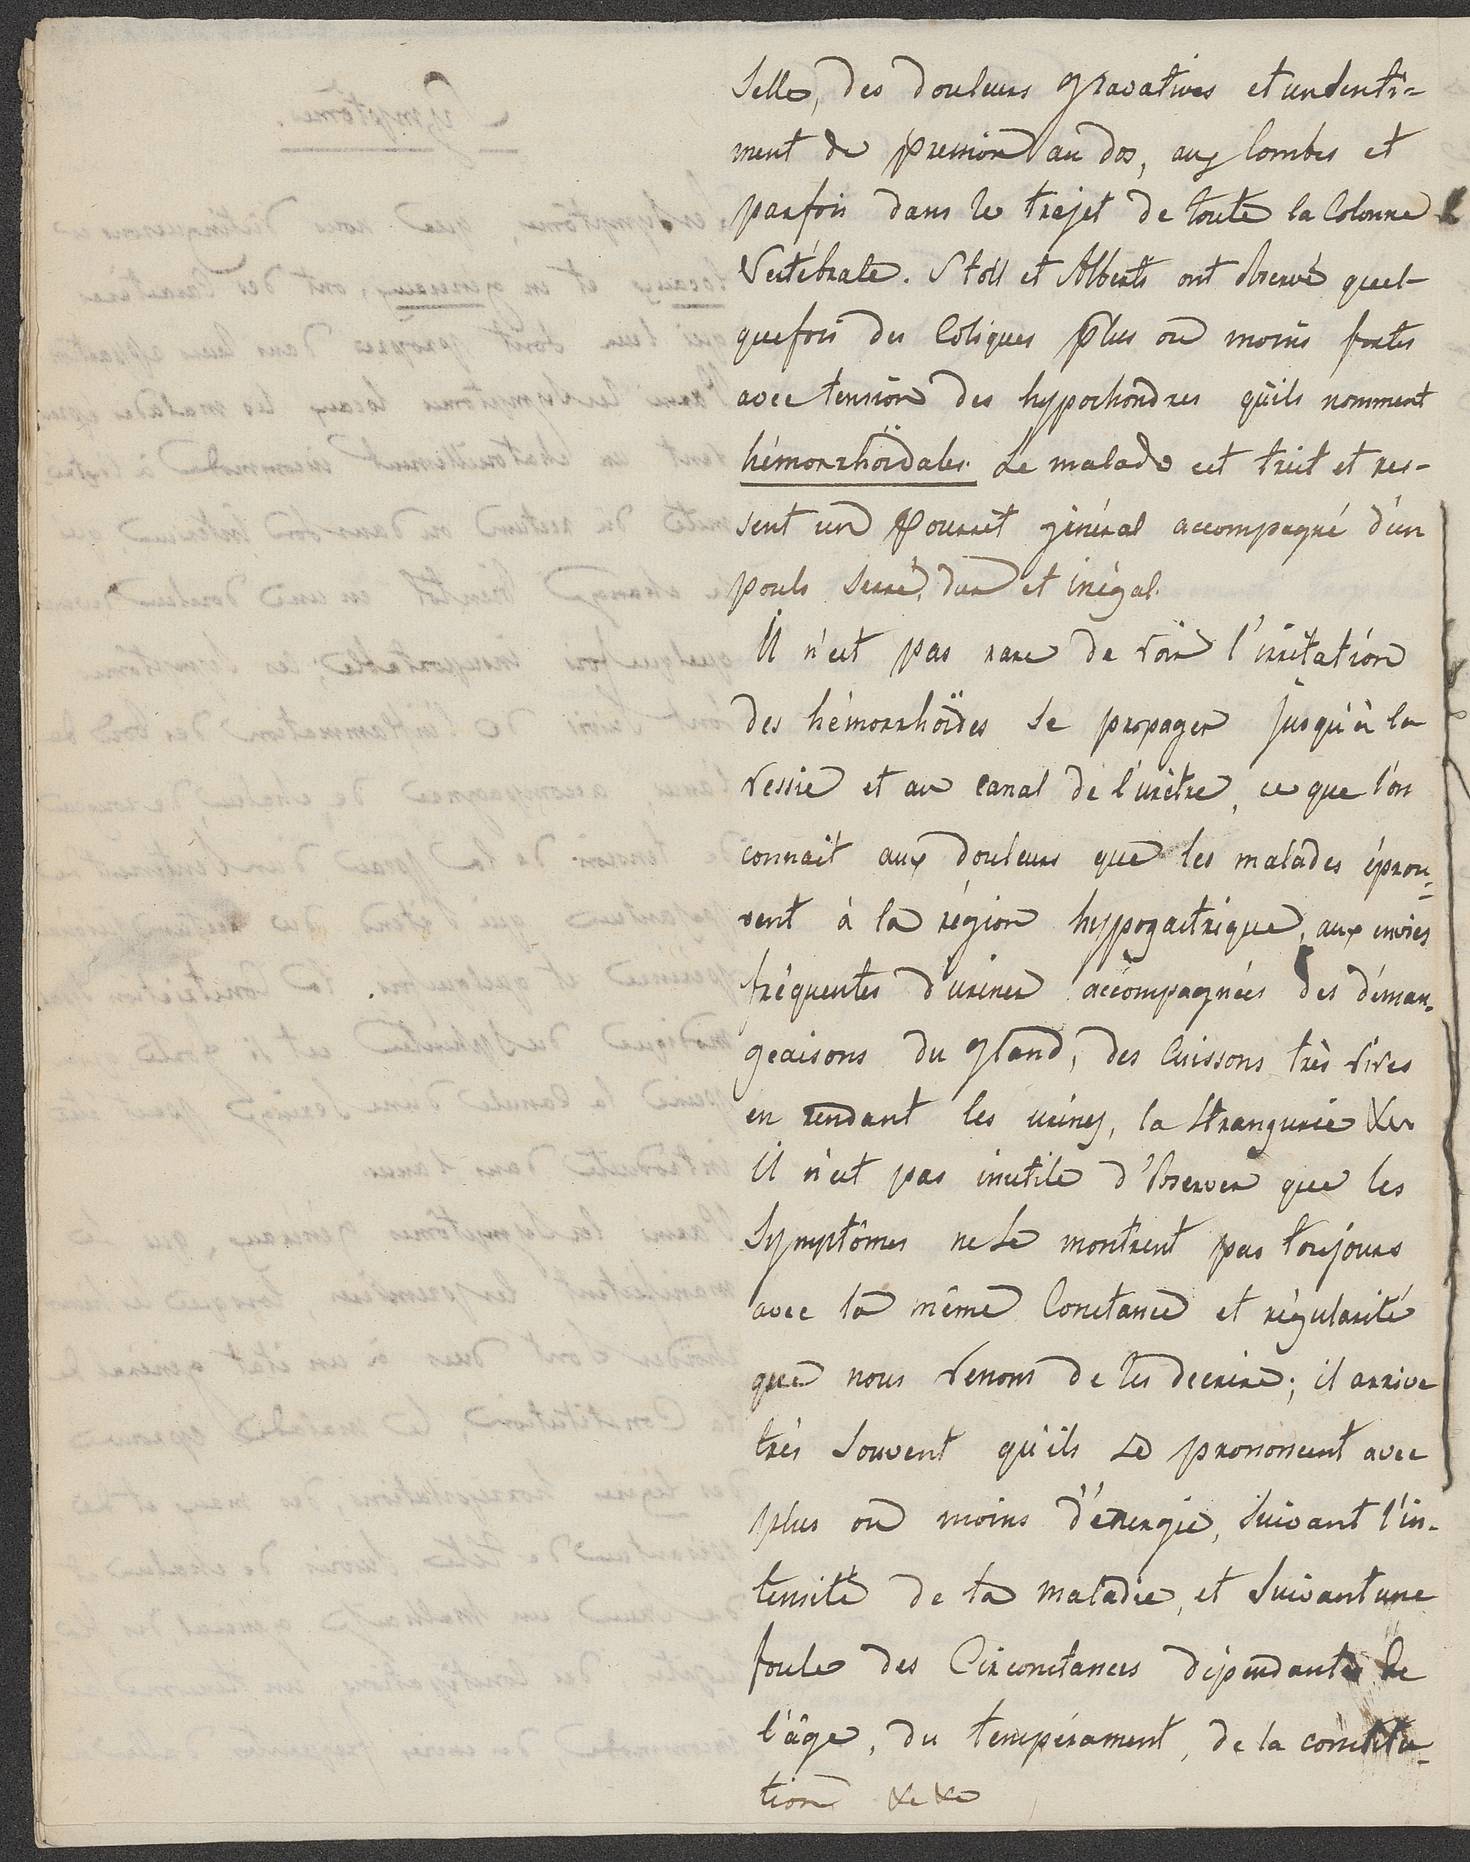 Selle, des douleurs gravatives et un senti=
ment de pression au dos, aux lombes et
parfois dans le trajet de toute la Colonne
Vertébrale. Stoll et Alberti ont observé quel-
quefois des Coliques plus ou moins fortes
avec tension des hypochondres qu'ils nomment
hémorrhoïdales. Le malade est trist et res-
sent un général accompagné d'un
pouls serré, dur et inégal.
Il n'est pas rare de voir l'irritation
des hémorrhoïdes se propager jusqu'à la
vessie et au canal de l'urètre, ce que l'on
connait aux douleurs que les malades éprou=
vent à la région hyppogastrique, aux envies
fréquentes d'uriner accompagnées des déman-
geaisons du gland, des Cuissons très vives
en rendant les urines, la Strangurie &c
Il n'est pas inutile d'Observer que les
Symptômes ne se montrent pas toujours
avec la même Constance et régularité
que nous venons de les decrire; il arrive
très Souvent qu'ils se prononcent avec
plus ou moins d'énergie, Suivant l'in-
tensité de la maladie, et Suivant une
foule des Circonstances dépendantes de
l'âge, du tempérament, de la constitu-
tion &c &c